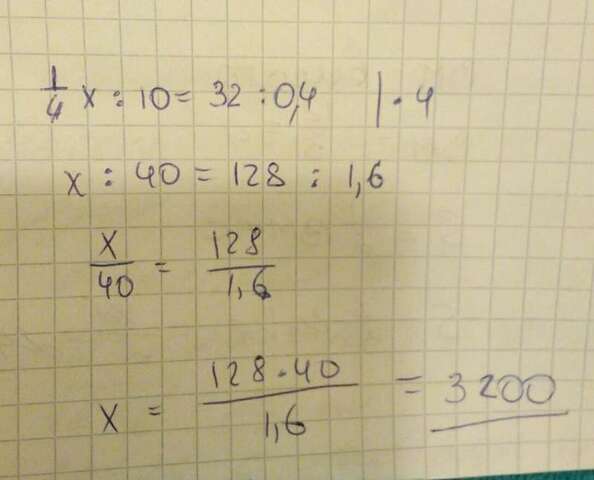 1/4 x : 10 = 32 : 0,4 | · 4
x : 40 = 128 : 1,6
x/40 = 128/1,6
x = 128·40/1,6 = 3200